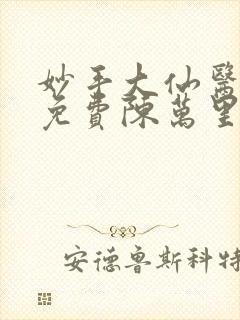 妙手大仙醫
免費陳萬里
安德魯斯科特